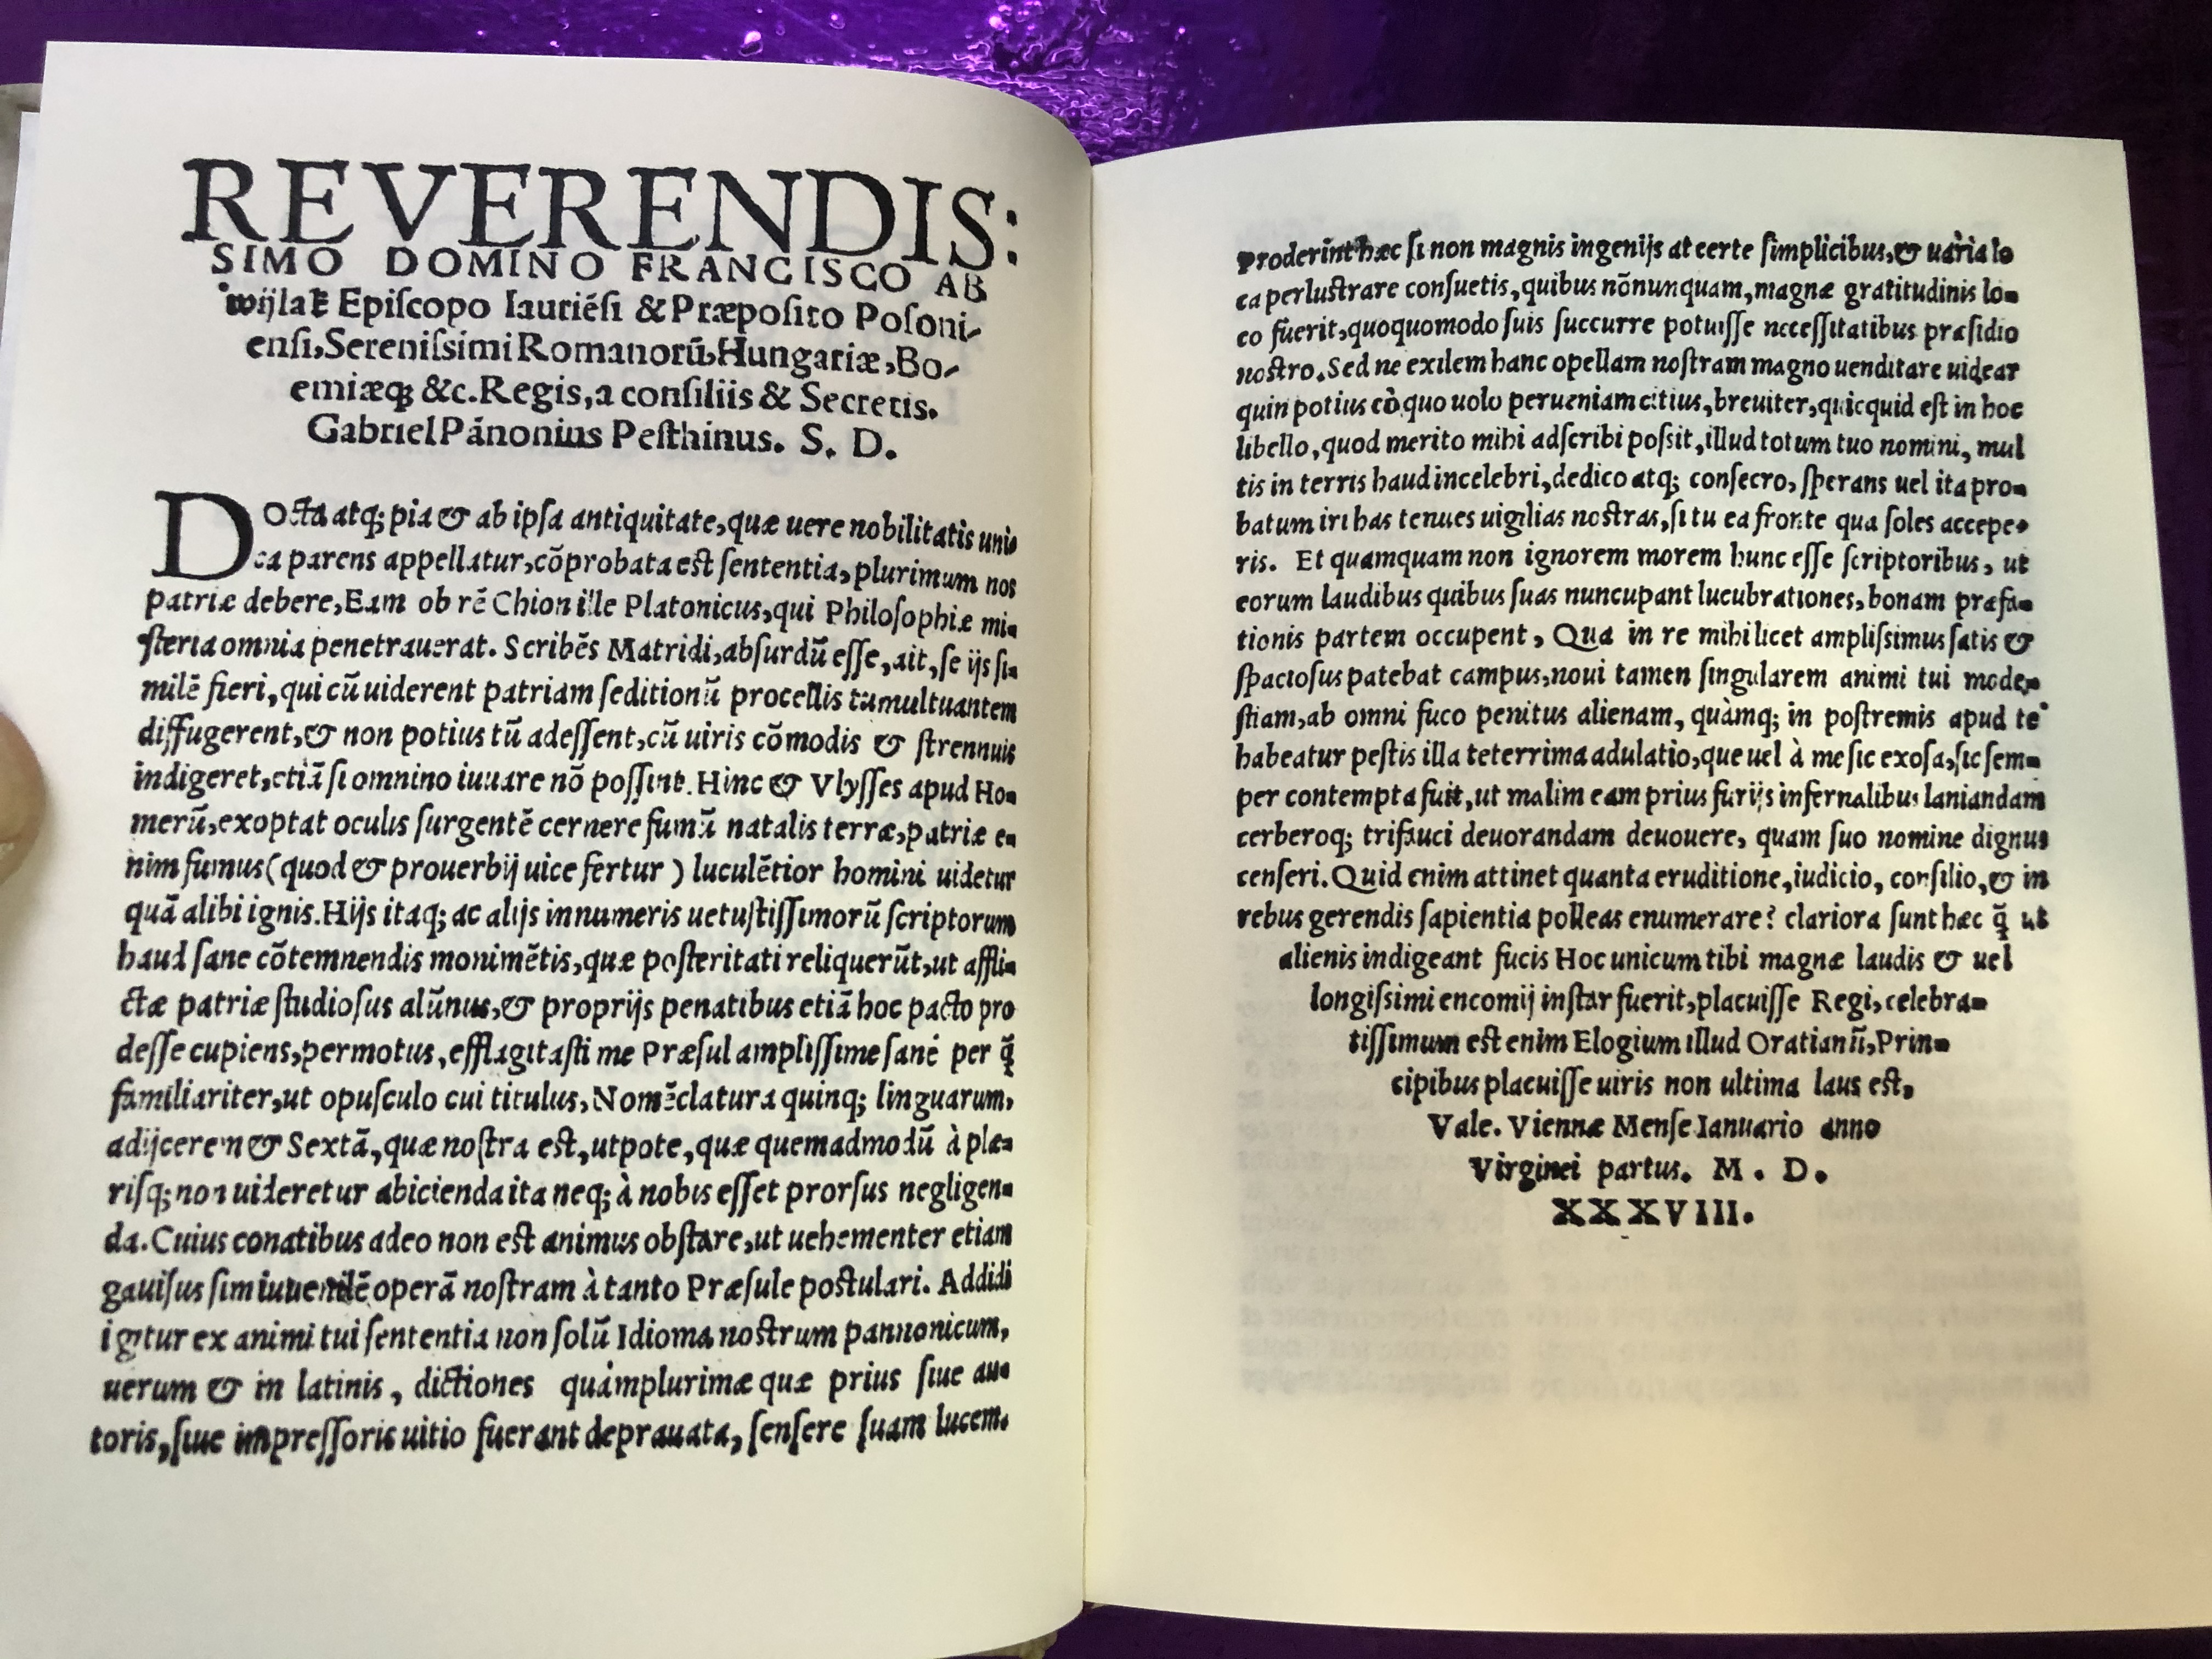 REVERENDIS:
SIMO DOMINO FRANCISCO AB
wijlak Episcopo Iauriēsi & Præposito Posoni-
ensi, Serenissimi Romanorū, Hungariæ, Bo-
emiæq; &c. Regis, a consiliis & Secretis.
Gabriel Pānonius Pesthinus. S. D.
DOcta atq; pia & ab ipsa antiquitate, quæ uere nobilitatis uni-
ca parens appellatur, cōprobata est sententia, plurimum nos
patriæ debere, Eam ob rē Chion ille Platonicus, qui Philosophiæ mi-
steria omnia penetrauerat. Scribēs Matridi, absurdū esse, ait, se ijs si-
milē fieri, qui cū uiderent patriam seditionū procellis tumultuantem
diffugerent, & non potius tū adessent, cū uiris cōmodis & strennuis
indigeret, etiā si omnino iuuare nō possint. Hinc & Vlysses apud Ho-
merū, exoptat oculis surgentē cernere fumū natalis terræ, patriæ e-
nim fumus (quod & prouerbij uice fertur) luculētior homini uidetur
quā alibi ignis. Hijs itaq; ac alijs innumeris uetustissimorū scriptorum
haud sane cōtemnendis monimētis, quæ posteritati reliquerūt, ut affli-
ctæ patriæ studiosus alūnus, & proprijs penatibus etiā hoc pacto pro
desse cupiens, permotus, efflagitasti me Præsul amplissime sanè per q̄
familiariter, ut opusculo cui titulus, Nomēclatura quinq; linguarum,
adijcerem & Sextā, quæ nostra est, utpote, quæ quemadmodū à plæ-
risq; non uideretur abicienda ita neq; à nobis esset prorsus negligen-
da. Cuius conatibus adeo non est animus obstare, ut uehementer etiam
gauisus sim iuuenilē operā nostram à tanto Præsule postulari. Addidi
igitur ex animi tui sententia non solū Idioma nostrum pannonicum,
uerum & in latinis, dictiones quàmplurimæ quæ prius siue au-
toris, siue impressoris uitio fuerant deprauata, sensere suam lucem.
Proderint hæc si non magnis ingenijs at certe simplicibus, & uaria lo
ca perlustrare consuetis, quibus nōnunquam, magnæ gratitudinis lo-
co fuerit, quoquomodo suis succurre potuisse necessitatibus præsidio
nostro. Sed ne exilem hanc opellam nostram magno uenditare uidear
quin potius eò quo uolo perueniam citius, breuiter, quicquid est in hoc
libello, quod merito mihi adscribi possit, illud totum tuo nomini, mul
tis in terris haud incelebri, dedico atq; consecro, sperans uel ita pro-
batum iri has tenues uigilias nostras, si tu ea fronte qua soles accepe-
ris. Et quamquam non ignorem morem hunc esse scriptoribus, ut
eorum laudibus quibus suas nuncupant lucubrationes, bonam præfa-
tionis partem occupent, Qua in re mihi licet amplissimus satis &
spactosus patebat campus, noui tamen singularem animi tui mode-
stiam, ab omni fuco penitus alienam, quàmq; in postremis apud te
habeatur pestis illa teterrima adulatio, que uel à me sic exosa, sic sem-
per contempta fuit, ut malim eam prius furijs infernalibus laniandam
cerberoq; trifauci deuorandam deuouere, quam suo nomine dignus
censeri. Quid enim attinet quanta eruditione, iudicio, consilio, & in
rebus gerendis sapientia polleas enumerare? clariora sunt hæc q̄ ut
alienis indigeant fucis Hoc unicum tibi magnæ laudis & uel
longissimi encomij instar fuerit, placuisse Regi, celebra-
tissimum est enim Elogium illud Oratianū, Prin-
cipibus placuisse uiris non ultima laus est,
Vale. Viennæ Mense Ianuario anno
Virginei partus. M. D.
XXXVIII.